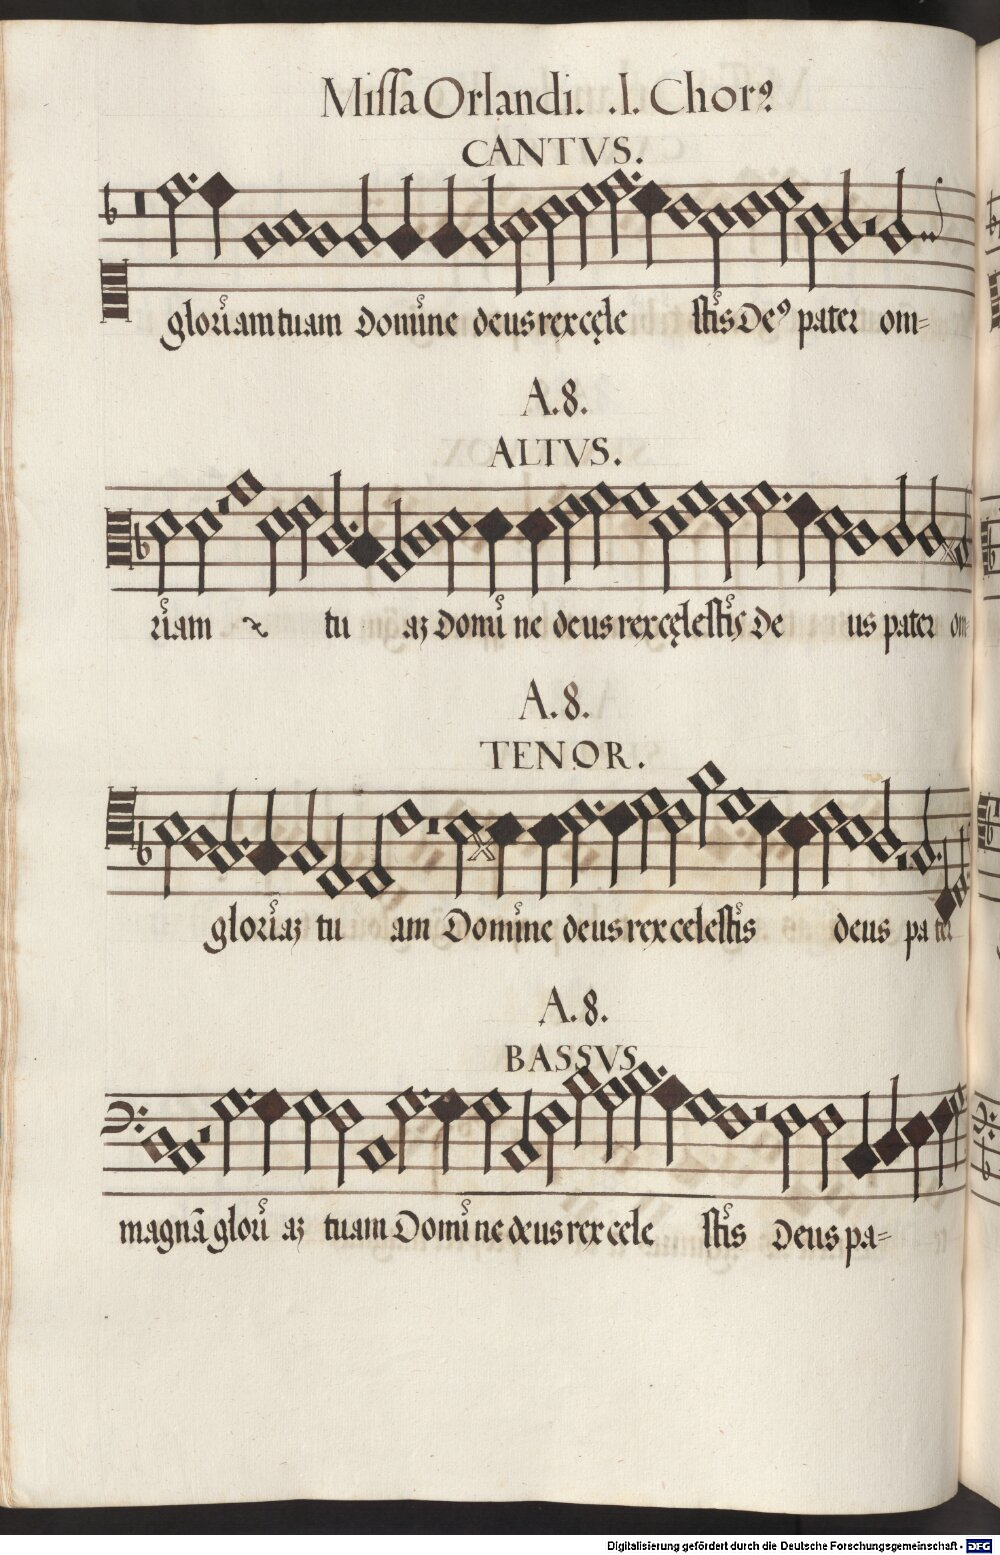 Missa Orlandi. .I. Chorꝰ
CANTVS.
gloriam tuam Domine deus rex cęle stis Deꝰ pater om=
A. 8.
ALTVS.
riam & tu aꝫ Domi ne deus rex cęlestis De us pater om=
A. 8.
TENOR.
gloriaꝫ tu am Domine deus rex celestis deus pa ter
A. 8.
BASSVS
magnā glori aꝫ tuam Domi ne deus rex cele stis Deus pa=
Digitalisierung gefördert durch die Deutsche Forschungsgemeinschaft - DFG